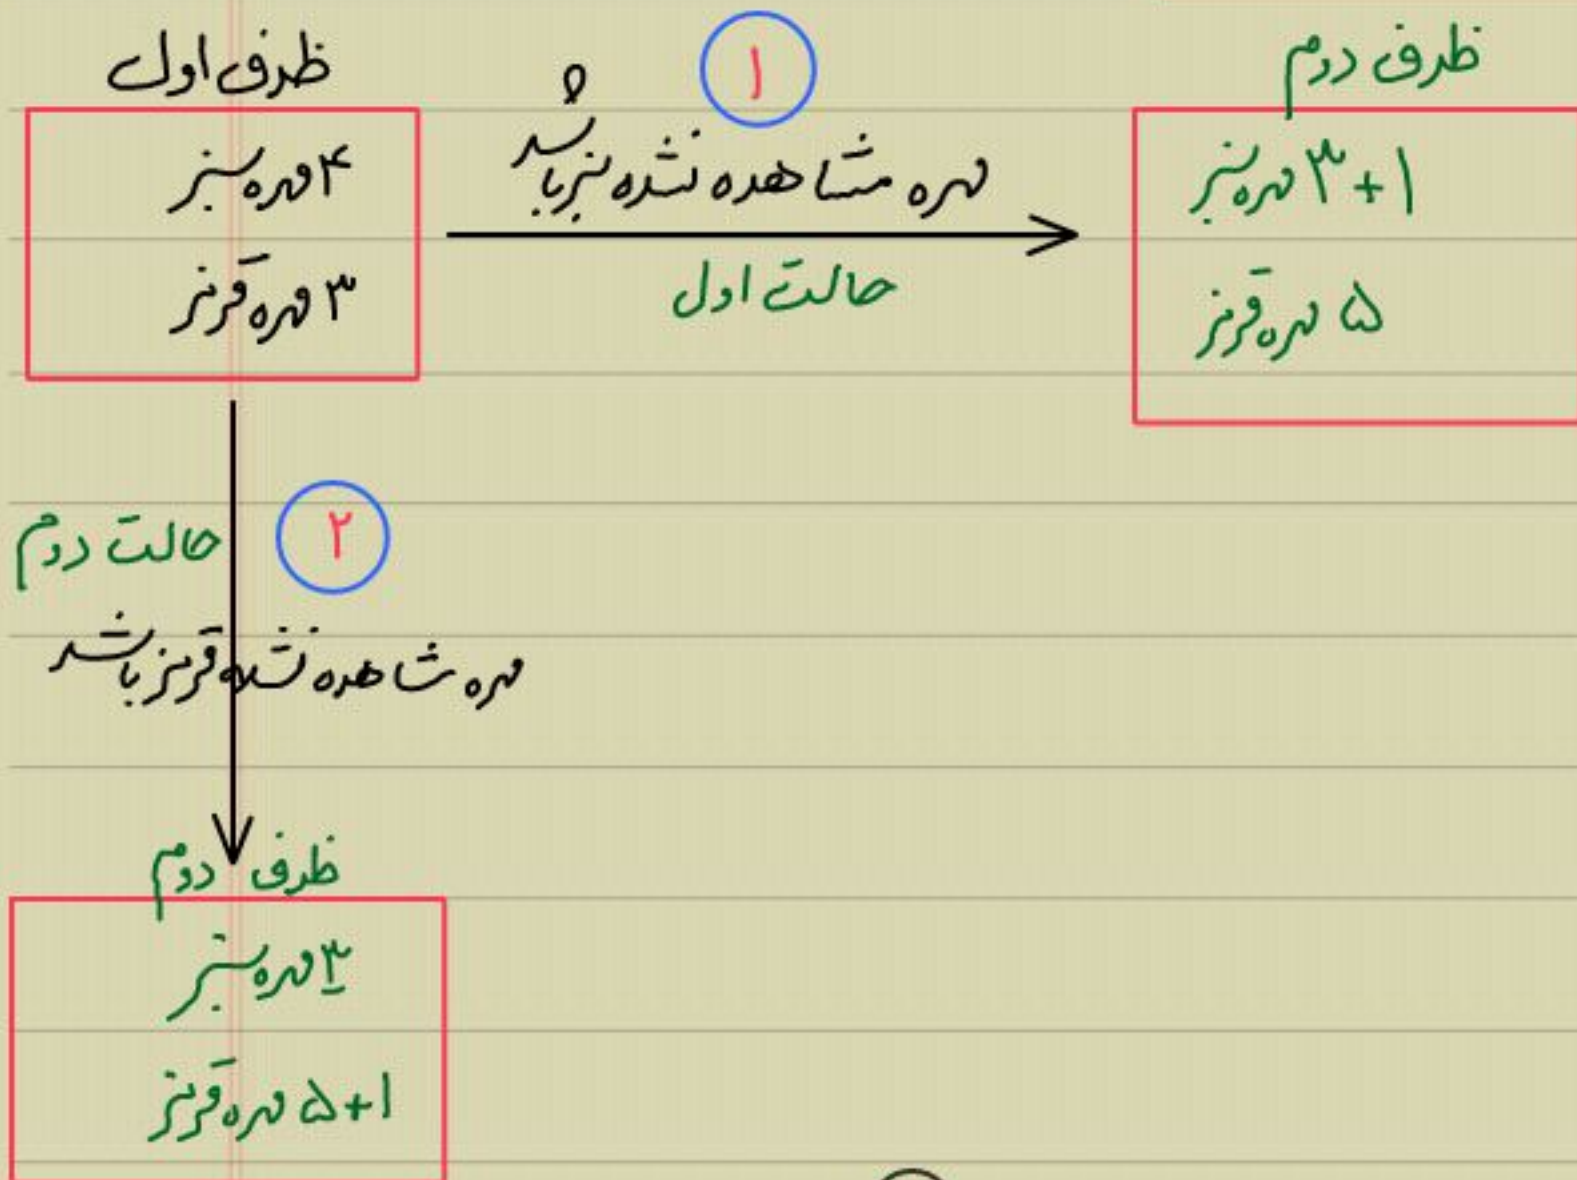 ظرف اول
۴ مهره سبز
۳ مهره قرمز
۱
مهره مشاهده نشده سبز باشد
حالت اول
ظرف دوم
۳+۱ مهره سبز
۵ مهره قرمز
۲
حالت دوم
مهره مشاهده نشده قرمز باشد
ظرف دوم
۳ مهره سبز
۵+۱ مهره قرمز